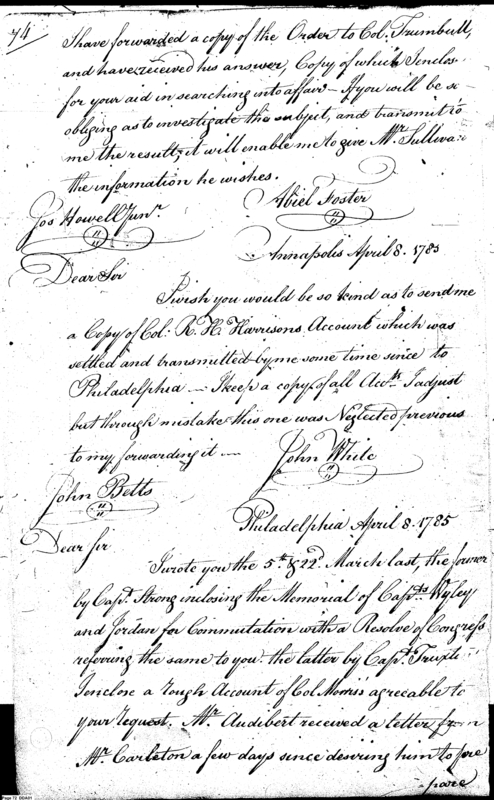 74
I have forwarded a copy of the Order to Col. Trumbull,
and have received his answer, Copy of which I enclose
for your aid in searching into affair — If you will be so
obliging as to investigate the subject, and transmit to
me the result, it will enable me to give Mr. Sullivan
the information he wishes.
Abiel Foster
Jos Howell Junr.
Annapolis April 8. 1785
Dear Sir
I wish you would be so kind as to send me
a Copy of Col. R. H. Harrisons Account which was
settled and transmitted by me some time since to
Philadelphia — I keep a copy of all Accts. I adjust
but through mistake this one was Neglected previous
to my forwarding it —
John White
John Betts
Philadelphia April 8. 1785
Dear Sir
I wrote you the 5th. & 22d. March last, the former
by Capt. Strong inclosing the Memorial of Capts. Wyley
and Jordan for Commutation with a Resolve of Congress
referring the same to you. the latter by Capt.
I enclose a rough Account of Col. Morris's agreeable to
your request. Mr. Audibert received a letter from
Mr. Carleton a few days since desiring him to pre
pare